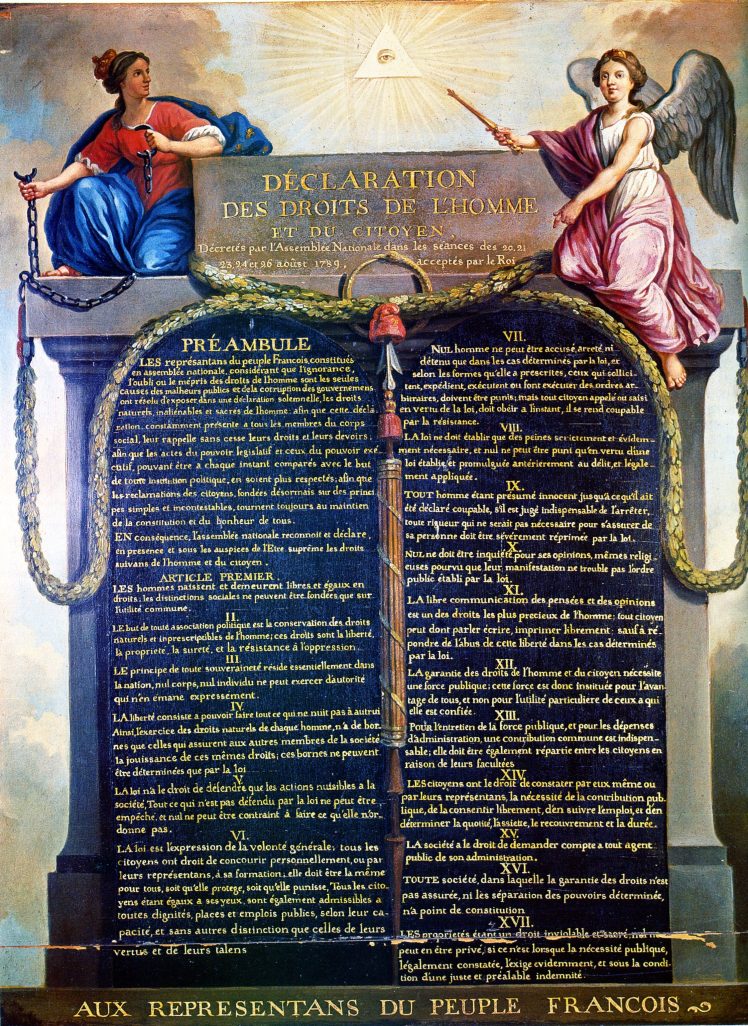 DÉCLARATION
DES DROITS DE L'HOMME
ET DU CITOYEN,
Décretés par l'Assemblée Nationale dans les séances des 20, 21
23, 24 et 26 aoûst 1789, acceptés par le Roi
PRÉAMBULE
LES représantans du peuple Francois, constitués
en assemblée nationale, considérant que l'ignorance,
l'oubli ou le mépris des droits de l'homme sont les seules
causes des malheurs publics et de la corruption des gouvernemens
ont résolu d'exposer dans une déclaration solemnelle, les droits
naturels, inaliénables et sacrés de l'homme: afin que cette décla-
ration, constamment présente a tous les membres du corps
social, leur rappelle sans cesse leurs droits et leurs devoirs;
afin que les actes du pouvoir législatif et ceux du pouvoir exé-
cutif, pouvant être a chaque instant comparés avec le but
de toute institution politique, en soient plus respectés; afin que
les reclamations des citoyens, fondées désormais sur des princi-
pes simples et incontestables, tournent toujours au maintien
de la constitution et du bonheur de tous.
EN conséquence, l'assemblée nationale reconnoit et déclare,
en presence et sous les auspices de l'Etre suprême les droits
suivans de l'homme et du citoyen.
ARTICLE PREMIER.
LES hommes naissent et demeurent libres et égaux en
droits. les distinctions sociales ne peuvent être fondées que sur
l'utilité commune.
II.
LE but de toute association politique est la conservation des droits
naturels et inprescriptibles de l'homme; ces droits sont la liberté,
la propriété, la sureté, et la résistance à l'oppression.
III.
LE principe de toute souveraineté réside essentiellement dans
la nation, nul corps, nul individu ne peut exercer d'autorité
qui n'en émane expressement.
IV.
LA liberté consiste a pouvoir faire tout ce qui ne nuit pas à autrui
Ainsi, l'exercice des droits naturels de chaque homme, n'a de bor-
nes que celles qui assurent aux autres membres de la société
la jouissance de ces mêmes droits; ces bornes ne peuvent
être déterminées que par la loi
V.
LA loi n'a le droit de défendre que les actions nuisibles a la
société, Tout ce qui n'est pas défendu par la loi ne peut être
empêché, et nul ne peut être contraint à faire ce qu'elle n'or-
donne pas.
VI.
LA loi est l'expression de la volonté générale; tous les
citoyens ont droit de concourir personnellement, ou par
leurs représentans, à sa formation; elle doit être la même
pour tous, soit qu'elle protege, soit qu'elle punisse, Tous les cito-
yens étant égaux a ses yeux, sont également admissibles a
toutes dignités, places et emplois publics, selon leur ca-
pacité, et sans autres distinction que celles de leurs
vertus et de leurs talens
VII.
NUL homme ne peut être accusé, arreté, ni
détenu que dans les cas déterminés par la loi, et
selon les formes qu'elle a prescrites, ceux qui sollici-
tent, expédient, exécutent ou font exécuter des ordres ar-
bitraires, doivent être punis; mais tout citoyen appelé ou saisi
en vertu de la loi, doit obéir a l'instant, il se rend coupable
par la résistance.
VIII.
LA loi ne doit établir que des peines strictement et évidem-
ment nécessaire, et nul ne peut être puni qu'en vertu d'une
loi établie, et promulguée antérierement au délit, et légale-
ment appliquée.
IX.
TOUT homme étant présumé innocent jusqu'à ce qu'il ait
été déclaré coupable, s'il est jugé indispensable de l'arrêter,
toute rigueur qui ne serait pas nécessaire pour s'assurer de
sa personne doit être sévèrement réprimée par la loi.
X.
NUL ne doit être inquiété pour ses opinions, mêmes religi-
euses pourvu que leur manifestation ne trouble pas l'ordre
public établi par la loi.
XI.
LA libre communication des pensées et des opinions
est un des droits les plus precieux de l'homme; tout citoyen
peut dont parler écrire, imprimer librement: sauf à ré-
pondre de l'abus de cette liberté dans les cas déterminés
par la loi.
XII.
LA garantie des droits de l'homme et du citoyen nécessite
une force publique; cette force est donc instituée pour l'avan-
tage de tous, et non pour l'utilité particuliere de ceux a qui
elle est confiée.
XIII.
POUR l'entretien de la force publique, et pour les dépenses
d'administration, une contribution commune est indispen-
sable; elle doit être également répartie entre les citoyens en
raison de leurs facultées
XIV.
LES citoyens ont le droit de constater par eux même ou
par leurs représentans, la nécessité de la contribution pub-
lique, de la consentir librement, d'en suivre l'emploi, et d'en
déterminer la quotité, l'assiette, le recouvrement et la durée.
XV.
LA société a le droit de demander compte a tout agent
public de son administration.
XVI.
TOUTE société, dans laquelle la garantie des droits n'est
pas assurée, ni les séparation des pouvoirs déterminée,
n'a point de constitution
XVII.
LES propriétés étant un droit inviolable et sacré, nul ne
peut en être privé, si ce n'est lorsque la nécessité publique,
légalement constatée, l'exige evidemment, et sous la condi-
tion d'une juste et préalable indemnité.
AUX REPRESENTANS DU PEUPLE FRANCOIS